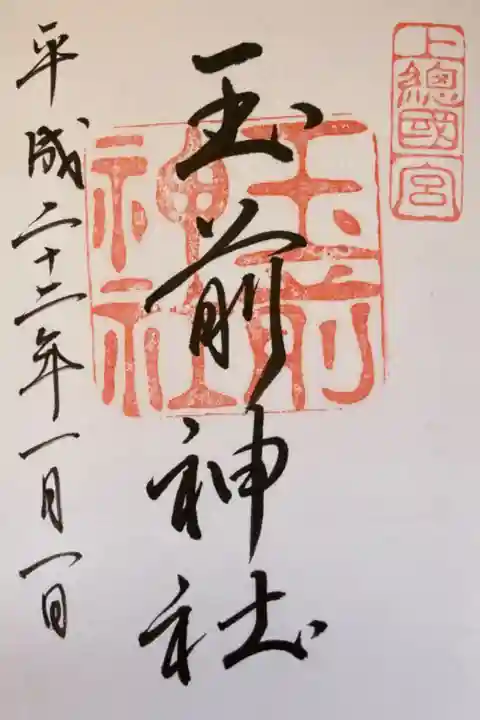 上總國宮
玉前神社
玉前
神社
平成二十二年一月一日